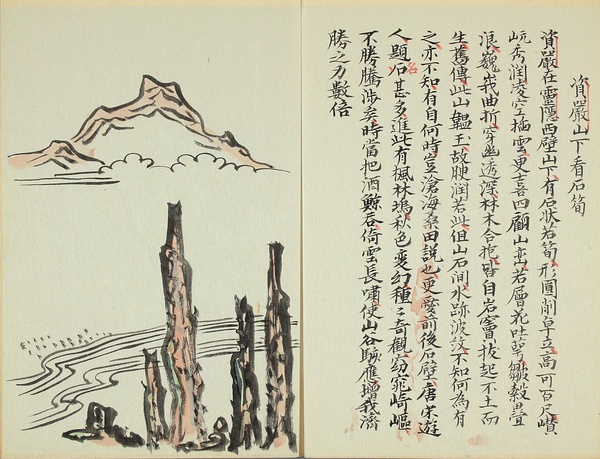 資嚴山下看石筍
資嚴在靈隱西壁山下有石狀若筍形圓削卓立高可百尺巑
岏秀潤凌空插雲更喜四顧山巒若層花吐萼皺縠疊
浪巍峩曲折穿幽透深林木合抱皆自岩竇拔起不土而
生舊傳此山韞玉故腴潤若此但山石間水跡波紋不知何為有
之亦不知有自何時豈滄海桑田說也更愛前後石壁唐宋遊
人題石名甚多進此有楓林塢秋色變幻種〻奇觀窈窕崎嶇
不勝騰涉矣時當把酒鯨吞倚雲長嘯使山谷應增我濟
勝之力數倍